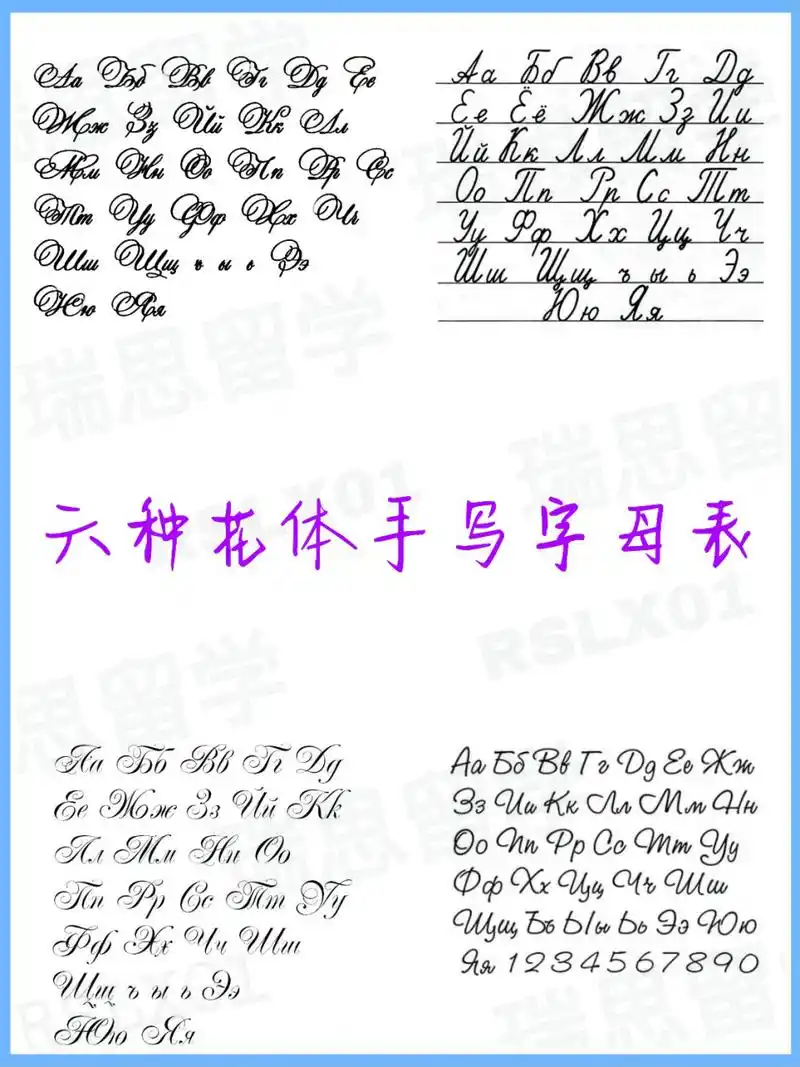 Аа Бб Вв Гг Дд Ее
Жж Зз Йй Кк Лл
Мм Нн Оо Пп Рр Сс
Тт Уу Фф Хх Чч
Шш Щщ ъ ы ь Ээ
Юю Яя
Аа Бб Вв Гг Дд
Ее Ёё Жж Зз Ии
Йй Кк Лл Мм Нн
Оо Пп Рр Сс Тт
Уу Фф Хх Цц Чч
Шш Щщ ъ ы ь Ээ
Юю Яя
瑞思留学
RSLX01
六种花体手写字母表
瑞思留学
RSLX01
Аа Бб Вв Гг Дд
Ее Жж Зз Йй Кк
Лл Мм Нн Оо
Пп Рр Сс Тт Уу
Фф Хх Чч Шш
Щщ ъ ы ь Ээ
Юю Яя
Аа Бб Вв Гг Дд Ее Жж
Зз Ии Кк Лл Мм Нн
Оо Пп Рр Сс Тт Уу
Фф Хх Цц Чч Шш
Щщ Ъъ Ыы Ьь Ээ Юю
Яя 1 2 3 4 5 6 7 8 9 0